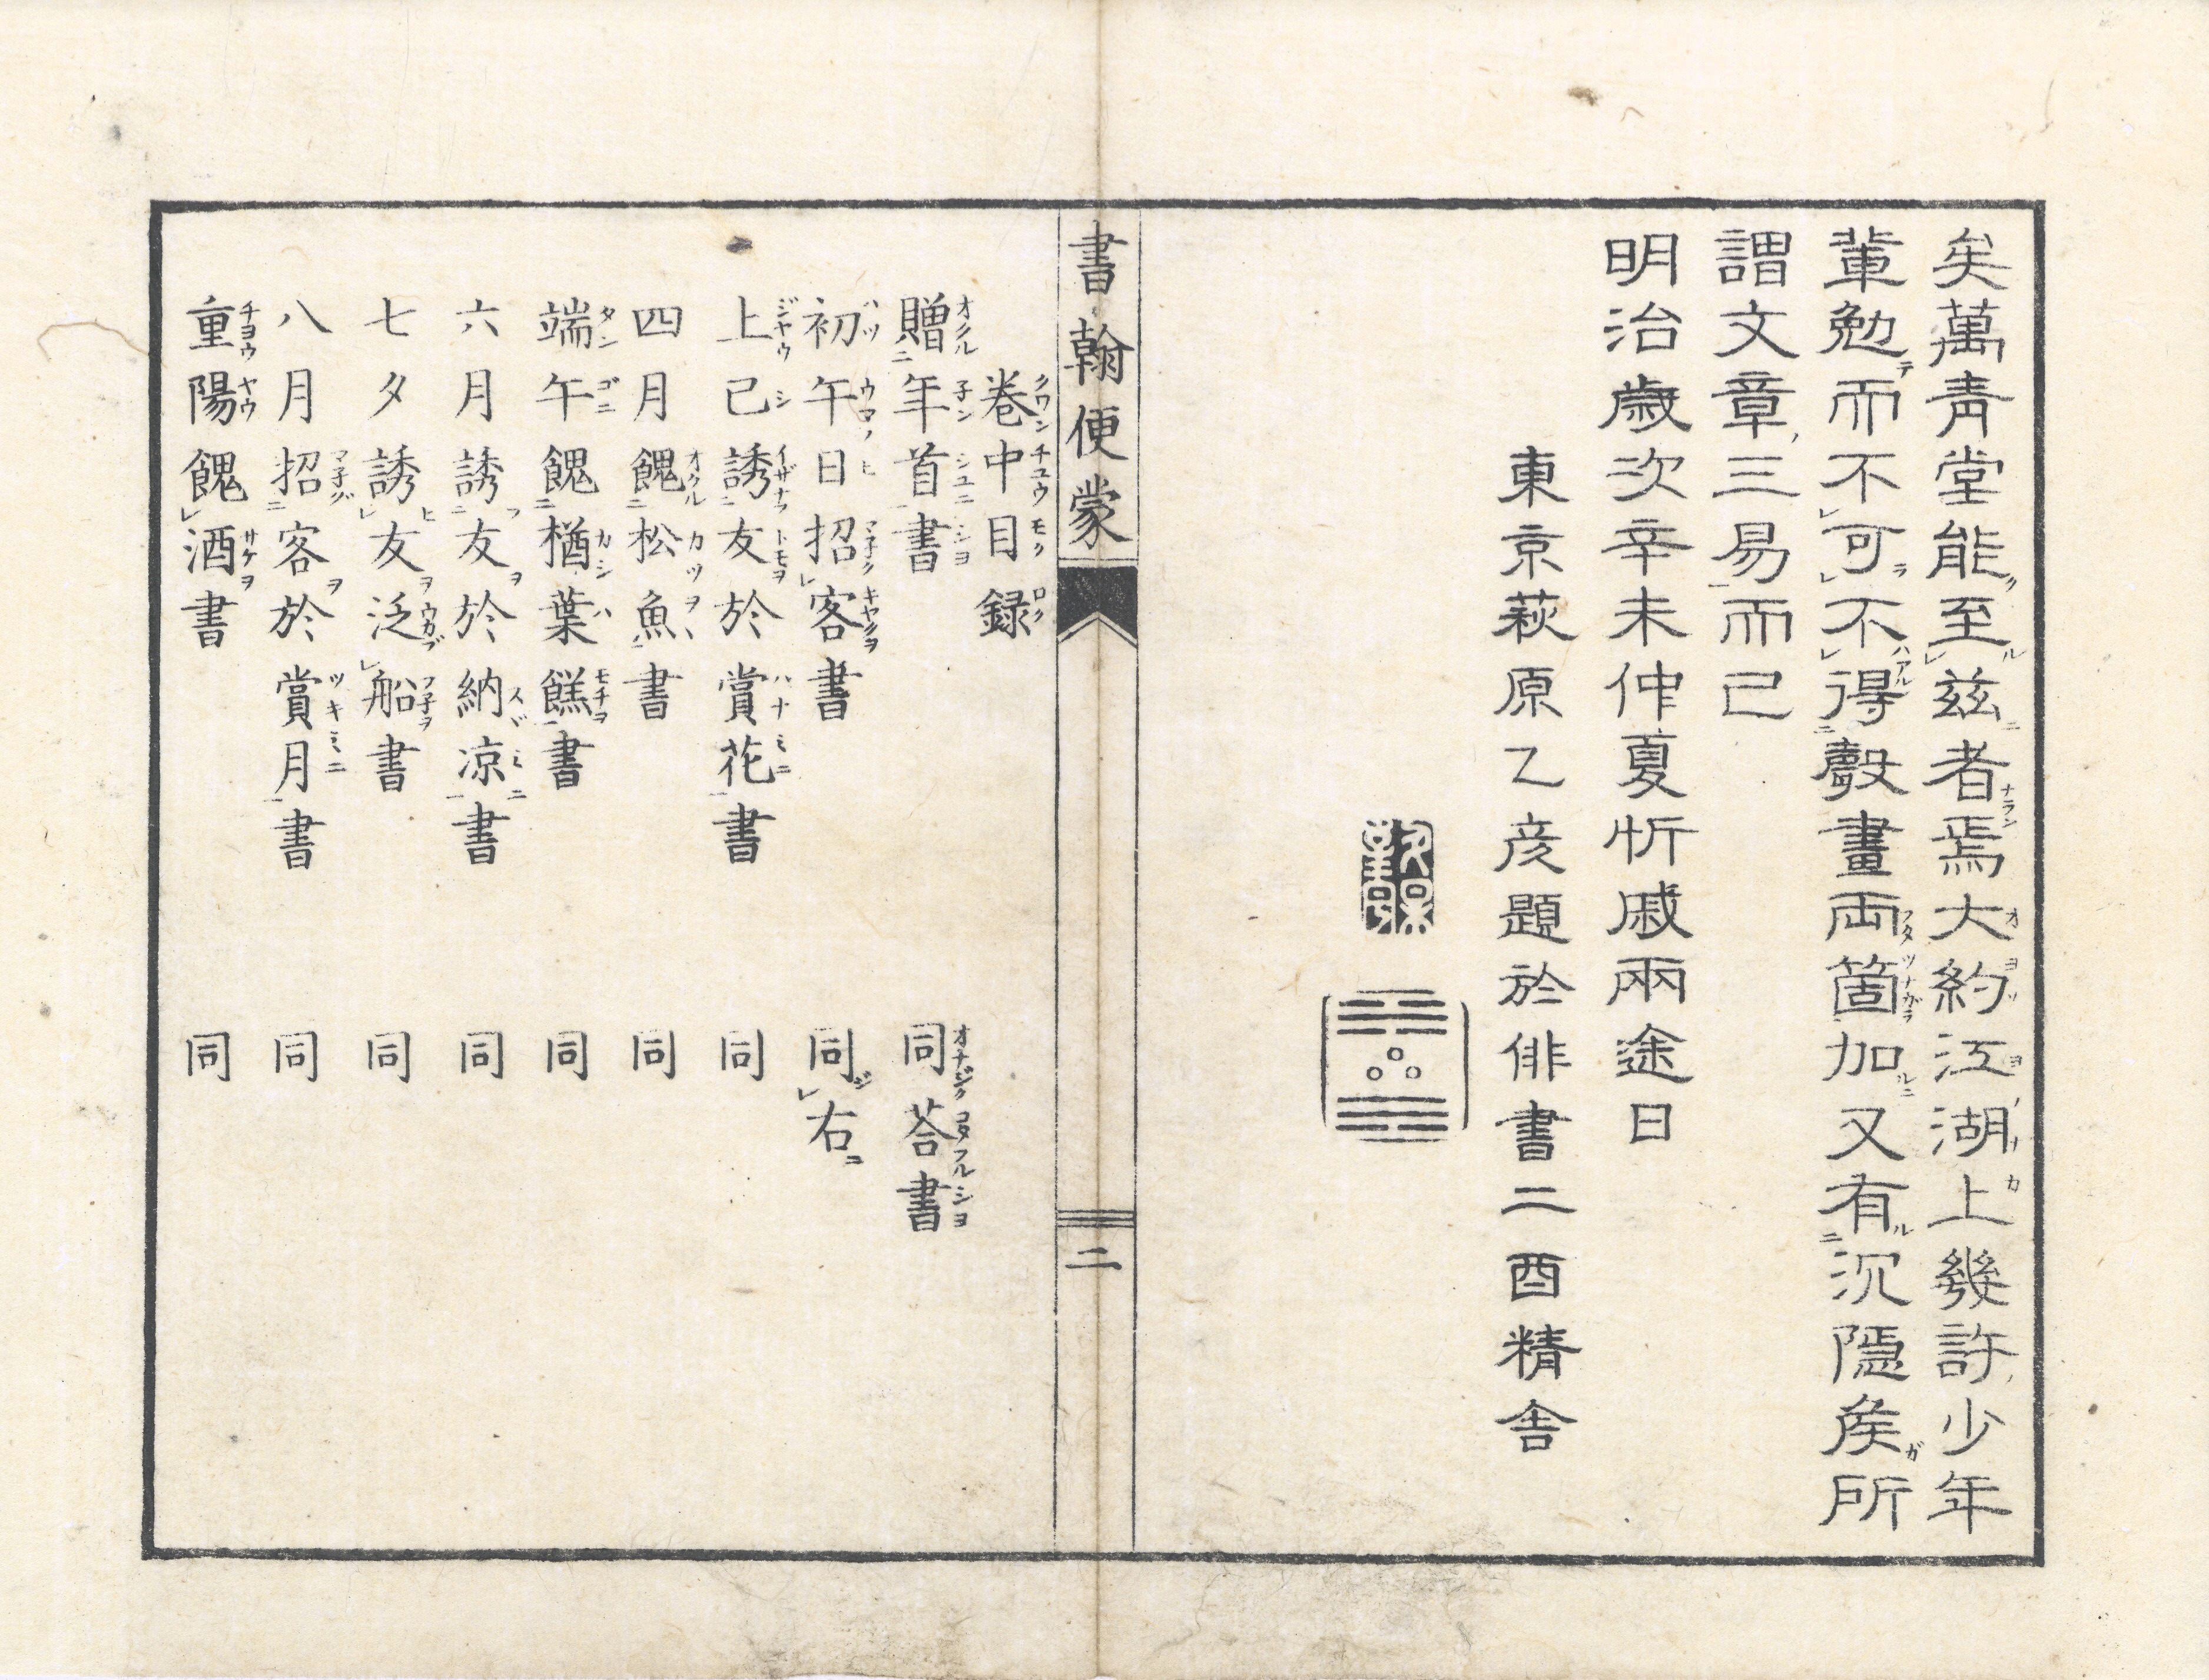 矣萬青堂能至茲者焉大約江湖上幾許少年
輩勉而不可不得毄畫両箇加又有沉隱矦所
謂文章三易而已
明治歲次辛未仲夏忻戚兩途日
東京萩原乙彦題於俳書二酉精舎
書翰便蒙
二
卷中目録
贈年首書 同荅書
初午日招客書 同右
上巳誘友於賞花書 同
四月餽松魚書 同
端午餽楢葉餻書 同
六月誘友於納凉書 同
七夕誘友泛船書 同
八月招客於賞月書 同
重陽餽酒書 同